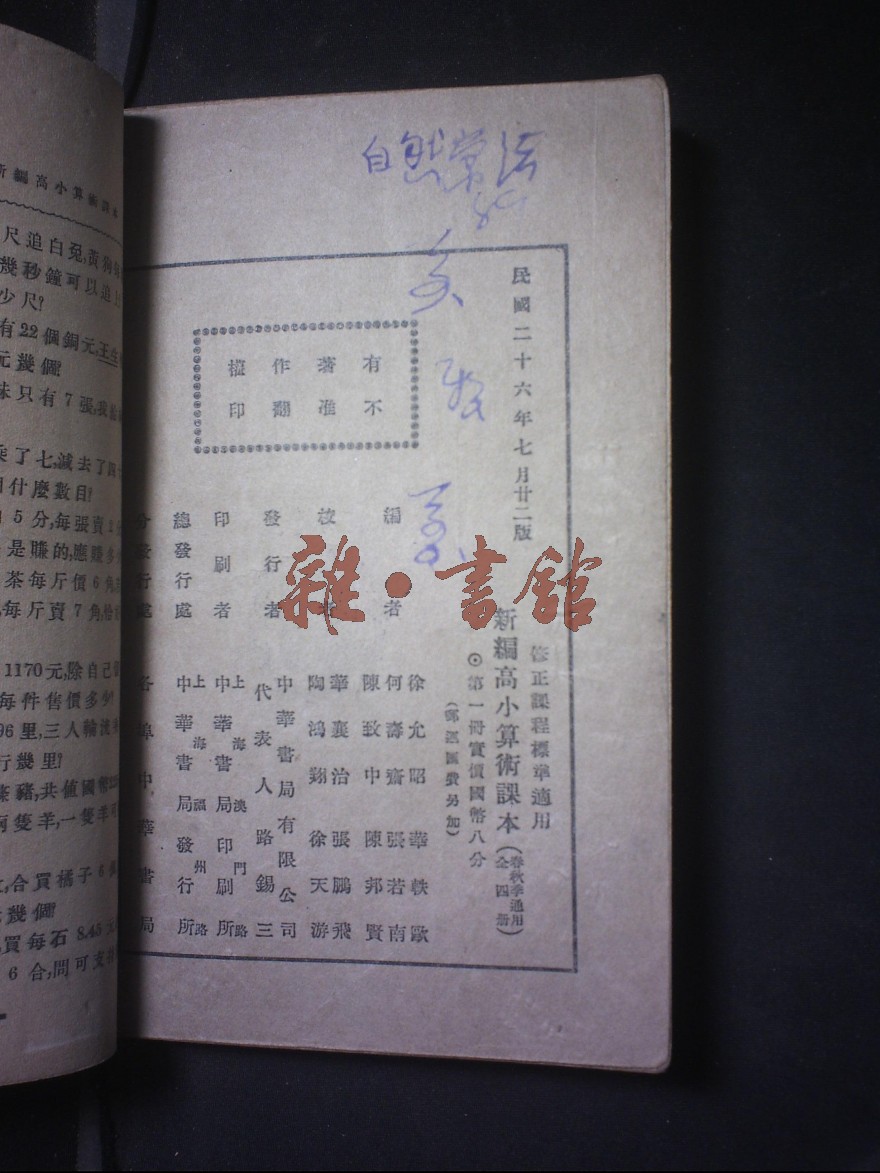 自然常
民國二十六年七月廿二版
修正課程標準適用
新編高小算術課本(春秋季通用 全四册)
◎第一冊實價國幣八分
(郵運匯費另加)
有著作權
不准翻印
編者
徐允昭 華軼歐
何壽齋 張若南
陳致中 陳邦賢
校者
華襄治 張鵬飛
陶鴻翔 徐天游
發行者
中華書局有限公司
代表人路錫三
印刷者
上海澳門路
中華書局印刷所
總發行處
上海福州路
中華書局發行所
分發行處
各埠中華書局
雜·書館
新編高小算術課本
尺追白兔,黃狗
幾秒鐘可以追上
少尺?
有22個銅元,王生
元幾個?
妹只有7張,我
乘了七,減去了四
什麼數目?
5分,每張賣2
是賺的,應賺多
茶每斤價6角
每斤賣7角,恰
1170元,除自己
每件售價多少?
96里,三人輪流
行幾里?
豬,共値國幣
兩隻羊,一隻羊可
合買橘子6個
幾個?
買每石8.45元
6合,問可支